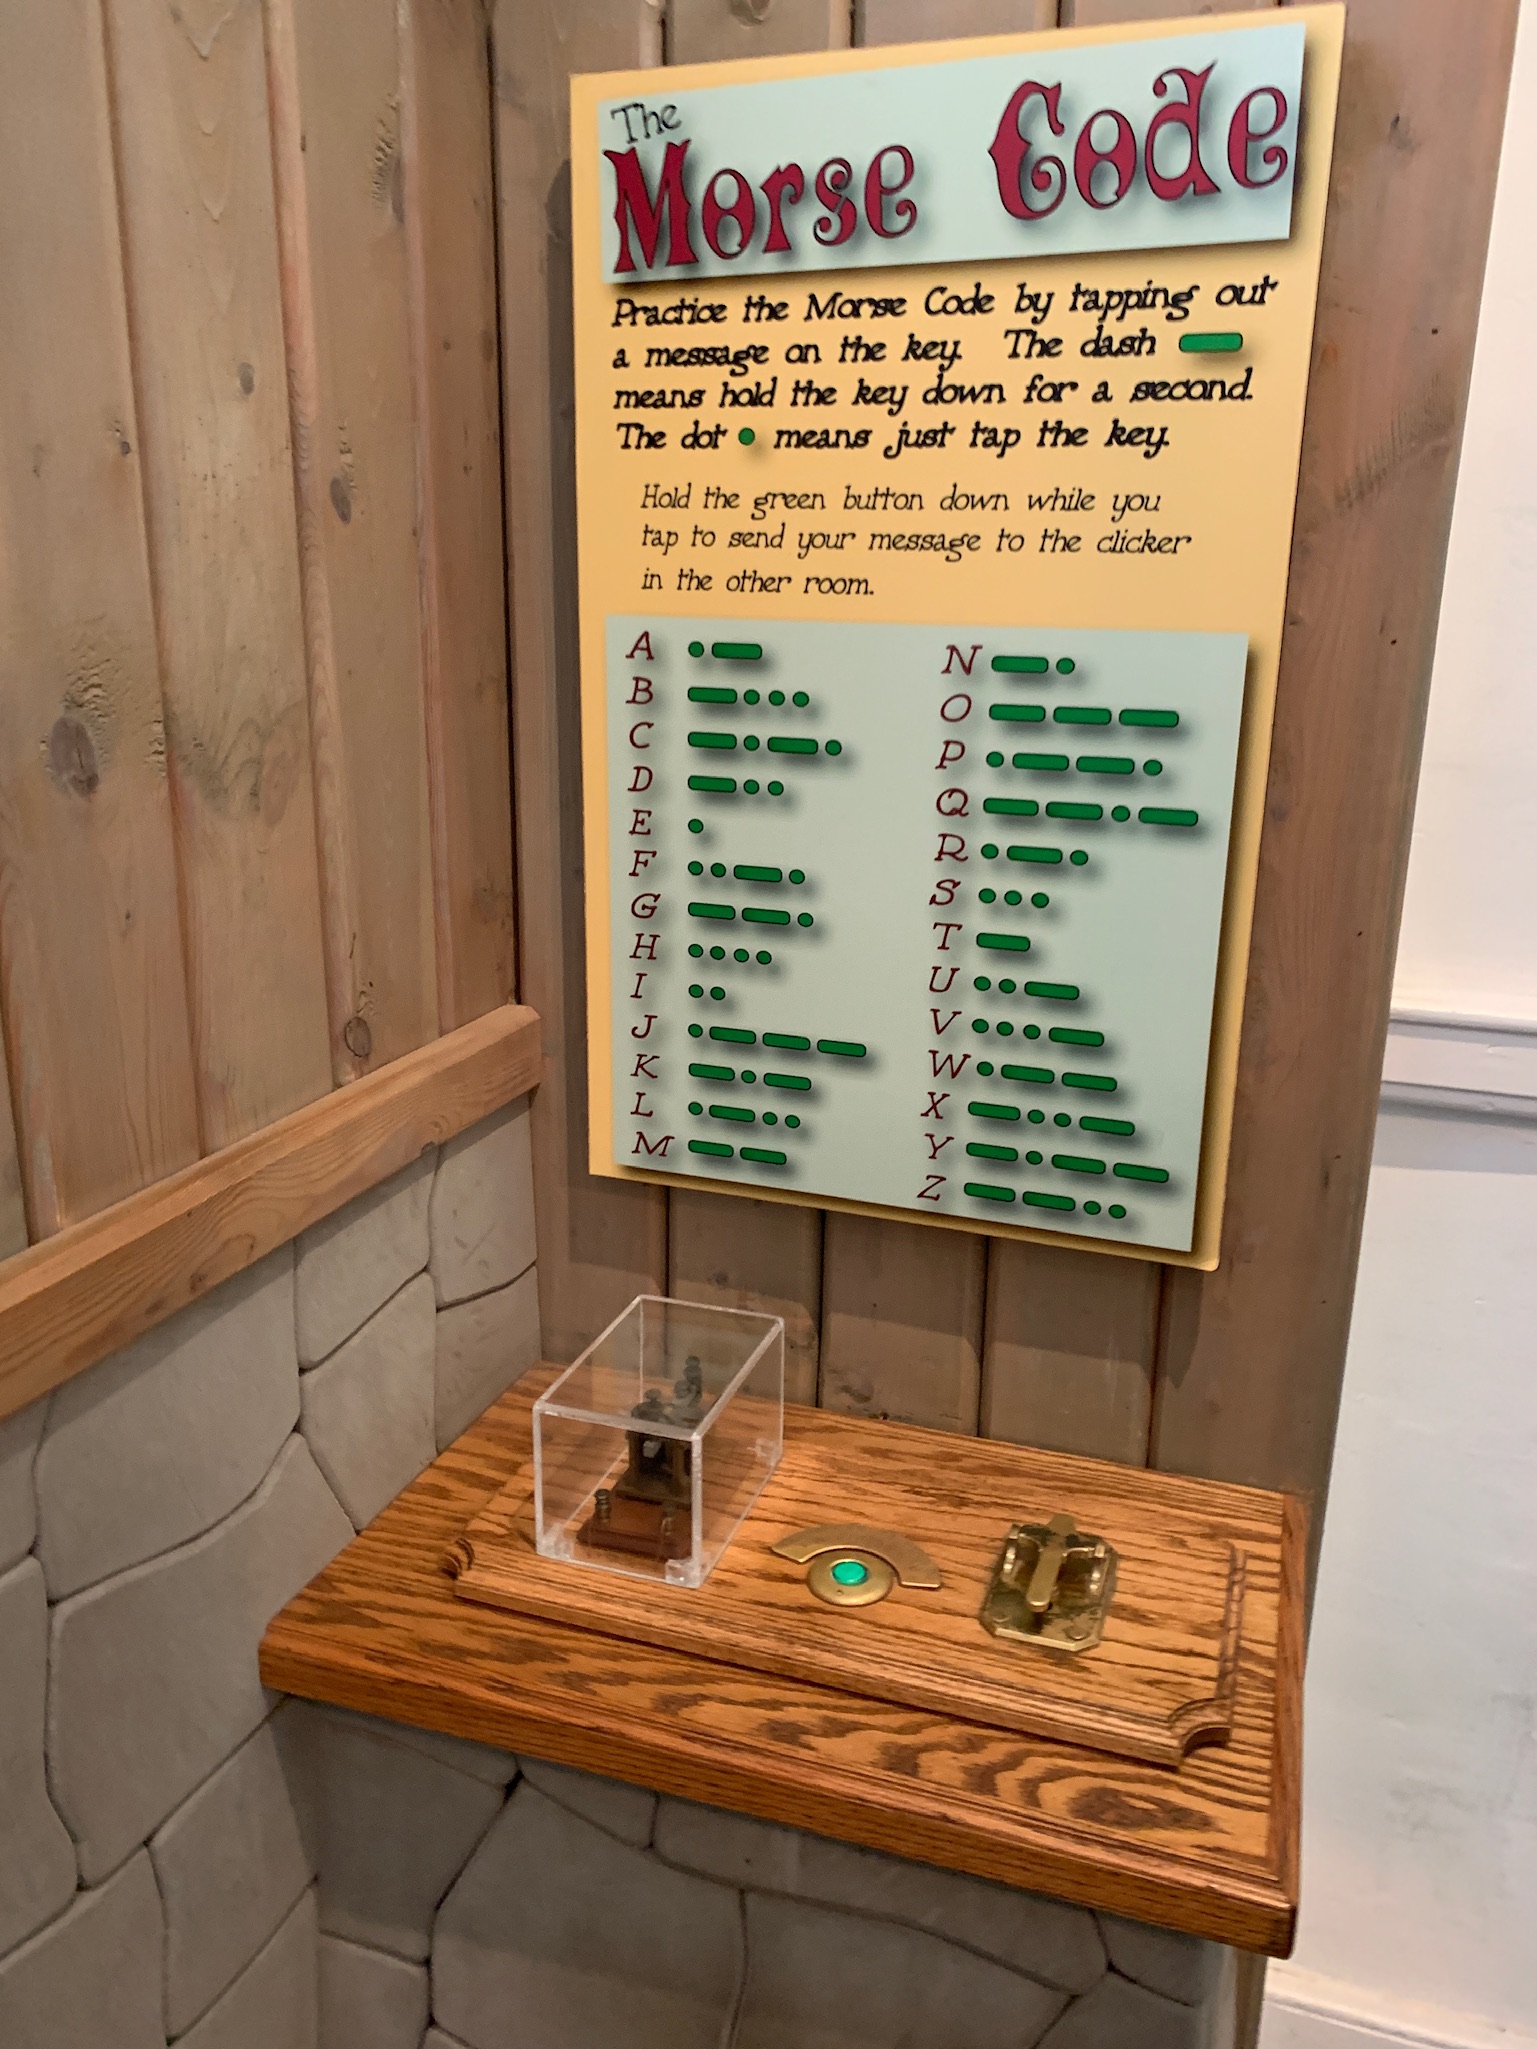 The
Morse Code
Practice the Morse Code by tapping out
a message on the key. The dash
means hold the key down for a second.
The dot • means just tap the key.
Hold the green button down while you
tap to send your message to the clicker
in the other room.
A •—
B —•••
C —•—•
D —••
E •
F ••—•
G ——•
H ••••
I ••
J •———
K —•—
L •—••
M ——
N —•
O ———
P •——•
Q ——•—
R •—•
S •••
T —
U ••—
V •••—
W •——
X —••—
Y —•——
Z ——••